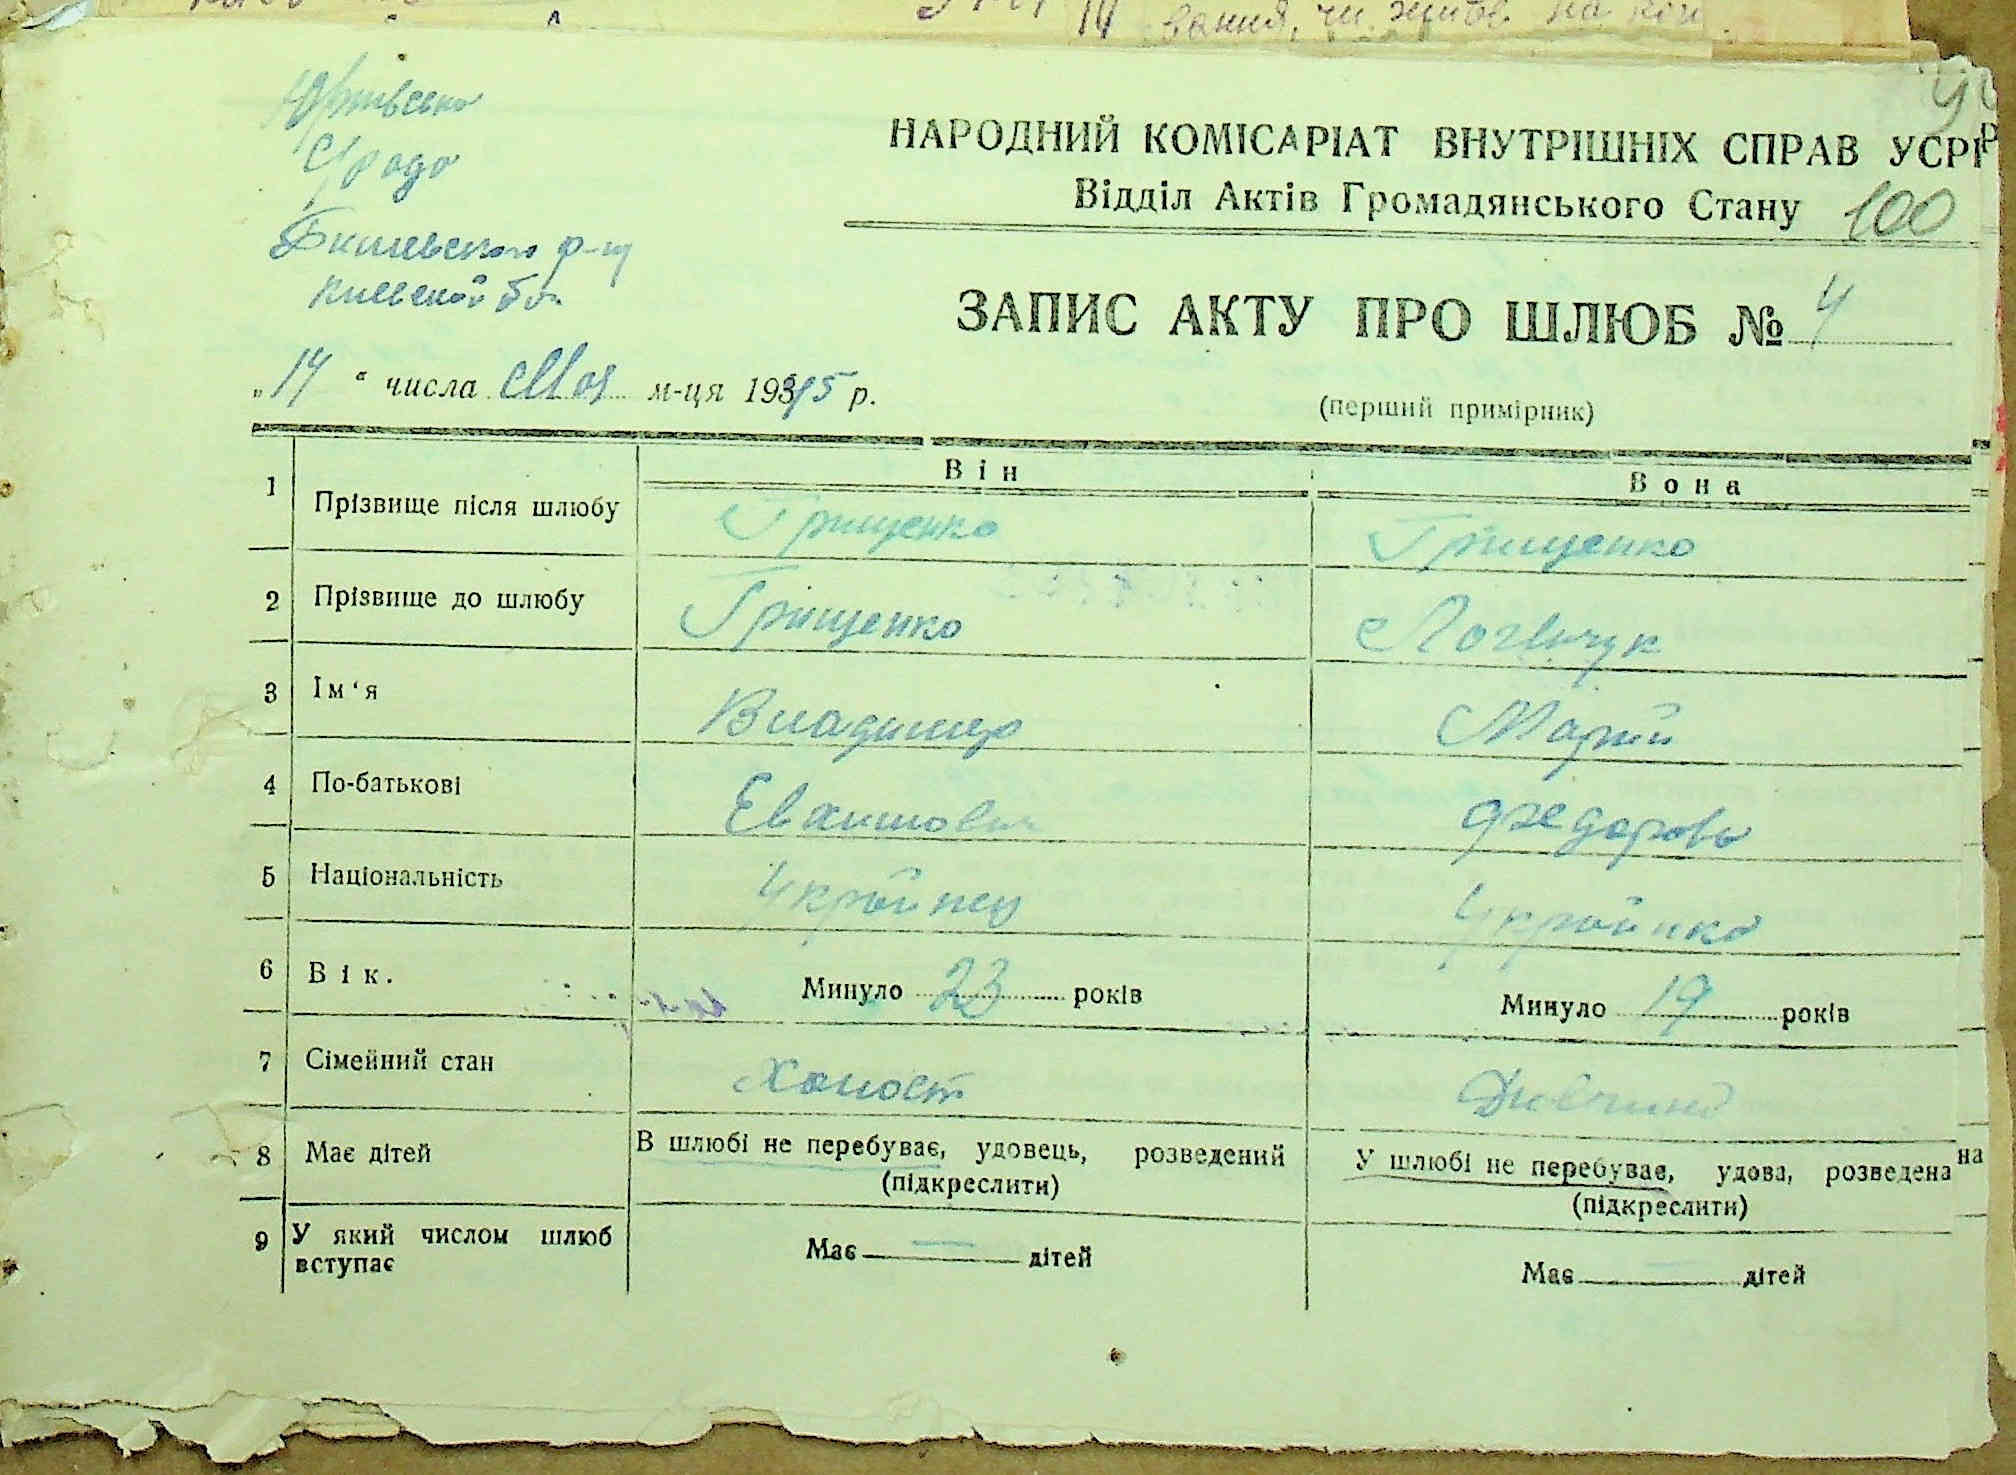 вання, чи житв на кон
Юрівська
Срада
Бишевского р-ну
Киевской бл
НАРОДНИЙ КОМІСАРІАТ ВНУТРІШНІХ СПРАВ УСРР
Відділ Актів Громадянського Стану 100
ЗАПИС АКТУ ПРО ШЛЮБ № 4
„14“ числа Мая м-ця 1945 р.
(перший примірник)
Він Вона
1 Прізвище після шлюбу Грищенко Грищенко
2 Прізвище до шлюбу Грищенко Логвчук
3 Ім‘я Владимер Марии
4 По-батькові Евхимович Федоровн
5 Національність Украйнец Украйнка
6 Вік. Минуло 23 років Минуло 19 років
7 Сімейний стан Холост Дивчина
8 Має дітей В шлюбі не перебуває, удовець, розведений У шлюбі не перебуває, удова, розведена на
(підкреслити) (підкреслити)
9 У який числом шлюб вступає Має — дітей Має — дітей